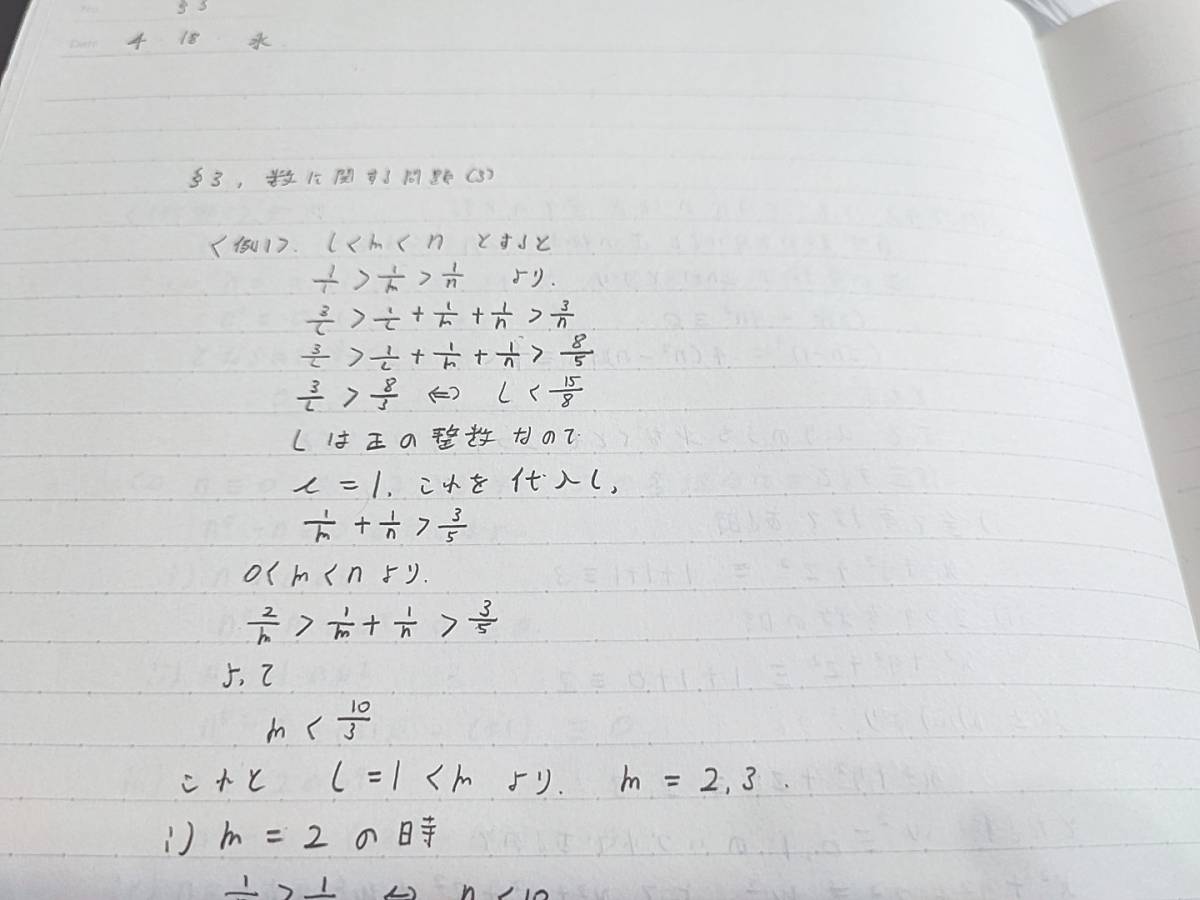 §3
Date 4 18 水
§3, 数に関する問題(3)
<例1>. l<m<n とすると
1/l > 1/m > 1/n より.
3/l > 1/l + 1/m + 1/n > 3/n
3/l > 1/l + 1/m + 1/n > 8/5
3/l > 8/3 ⇔ l < 15/8
lは正の整数なので
l=1. これを代入し,
1/m + 1/n > 3/5
0<m<nより.
2/m > 1/m + 1/n > 3/5
よって
m < 10/3
これと l=1<m より. m=2,3.
i) m=2の時
1/ > 1/ ⇔ n<10